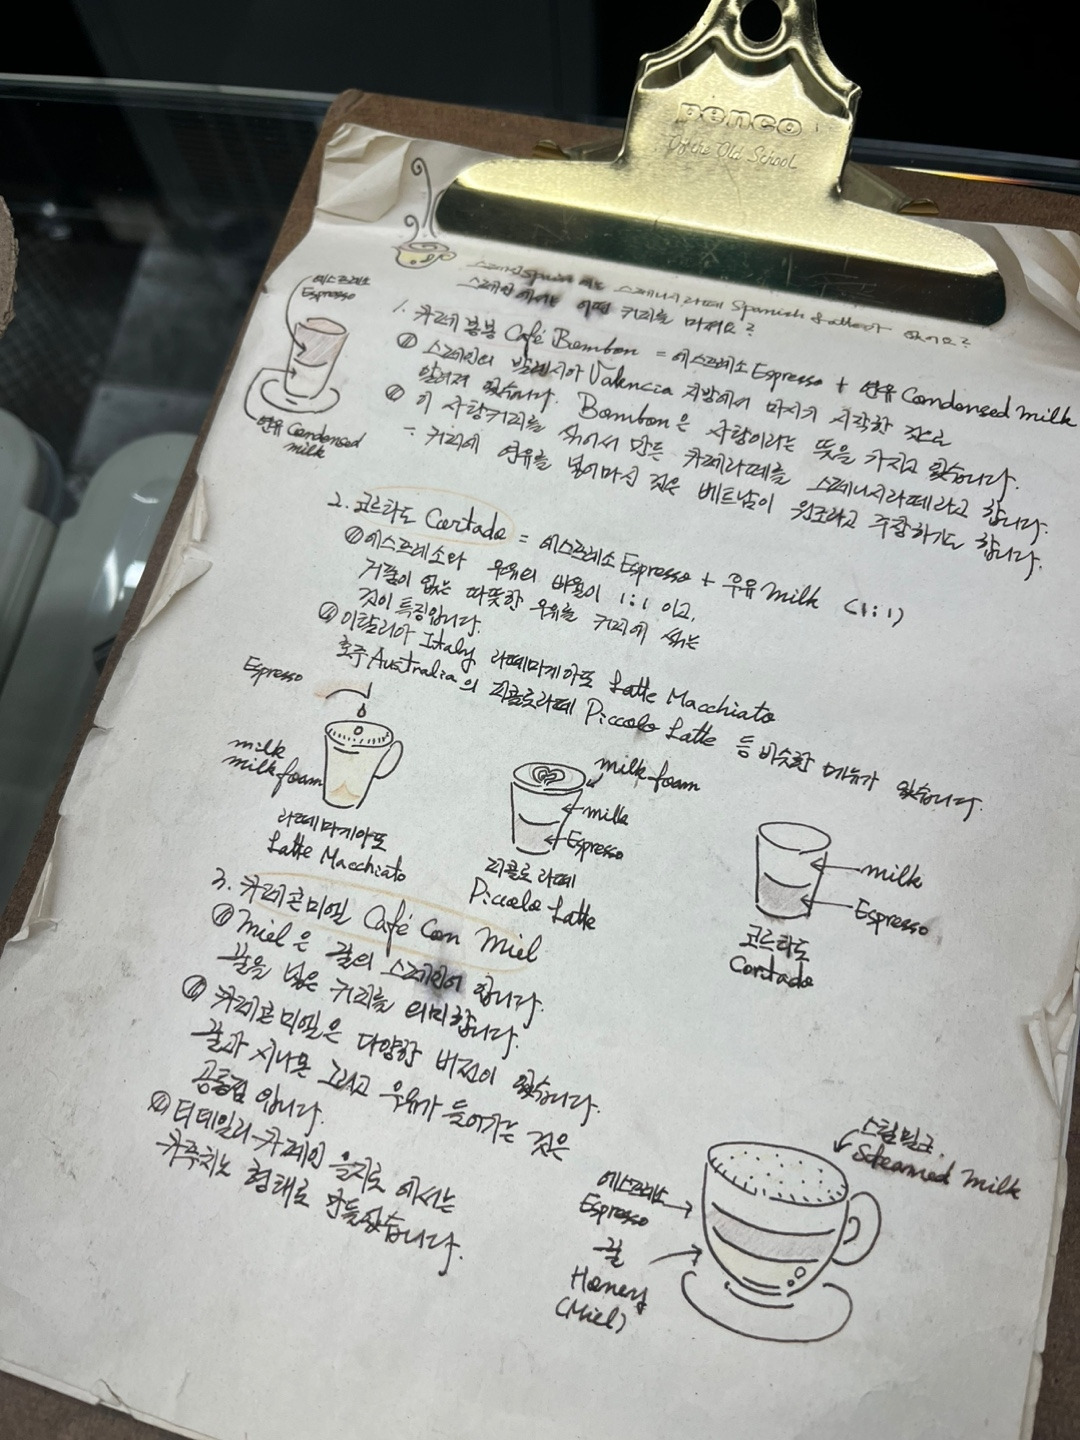 penco
Of the Old School
스페인 Spain 에는 스페니시라떼 Spanish Latte가 없어요?
스페인에서는 어떤 커피를 마셔요?
에스프레소
Espresso
연유 Condensed
milk
1. 카페봉봉 Café Bombon = 에스프레소 Espresso + 연유 Condensed milk
① 스페인의 발렌시아 Valencia 지방에서 마시기 시작한 것으로
알려져 있습니다. Bombon은 사탕이라는 뜻을 가지고 있습니다.
② 이 사탕커피를 섞어서 만든 카페라떼를 스페니시라떼라고 합니다.
- 커피에 연유를 넣어마신 것은 베트남이 원조라고 주장하기도 합니다.
2. 코르타도 Cortado = 에스프레소 Espresso + 우유 Milk (1:1)
① 에스프레소와 우유의 비율이 1:1 이고,
거품이 없는 따뜻한 우유를 커피에 섞는
것이 특징입니다.
② 이탈리아 Italy 라떼마키아또 Latte Macchiato
호주 Australia의 피콜로라떼 Piccolo Latte 등 비슷한 메뉴가 있습니다.
Espresso
milk
milk foam
라떼마키아또
Latte Macchiato
milk foam
milk
Espresso
피콜로라떼
Piccolo Latte
milk
Espresso
코르타도
Cortado
3. 카페콘미엘 Café Con Miel
① Miel은 꿀의 스페인어 입니다.
꿀을 넣은 커피를 의미합니다.
② 카페콘미엘은 다양한 버전이 있습니다.
꿀과 시나몬 그리고 우유가 들어가는 것은
공통점 입니다.
③ 더데일리카페인 을지로 에서는
카푸치노 형태로 만들었습니다.
스팀밀크
Steamed Milk
에스프레소
Espresso
꿀
Honey
(Miel)